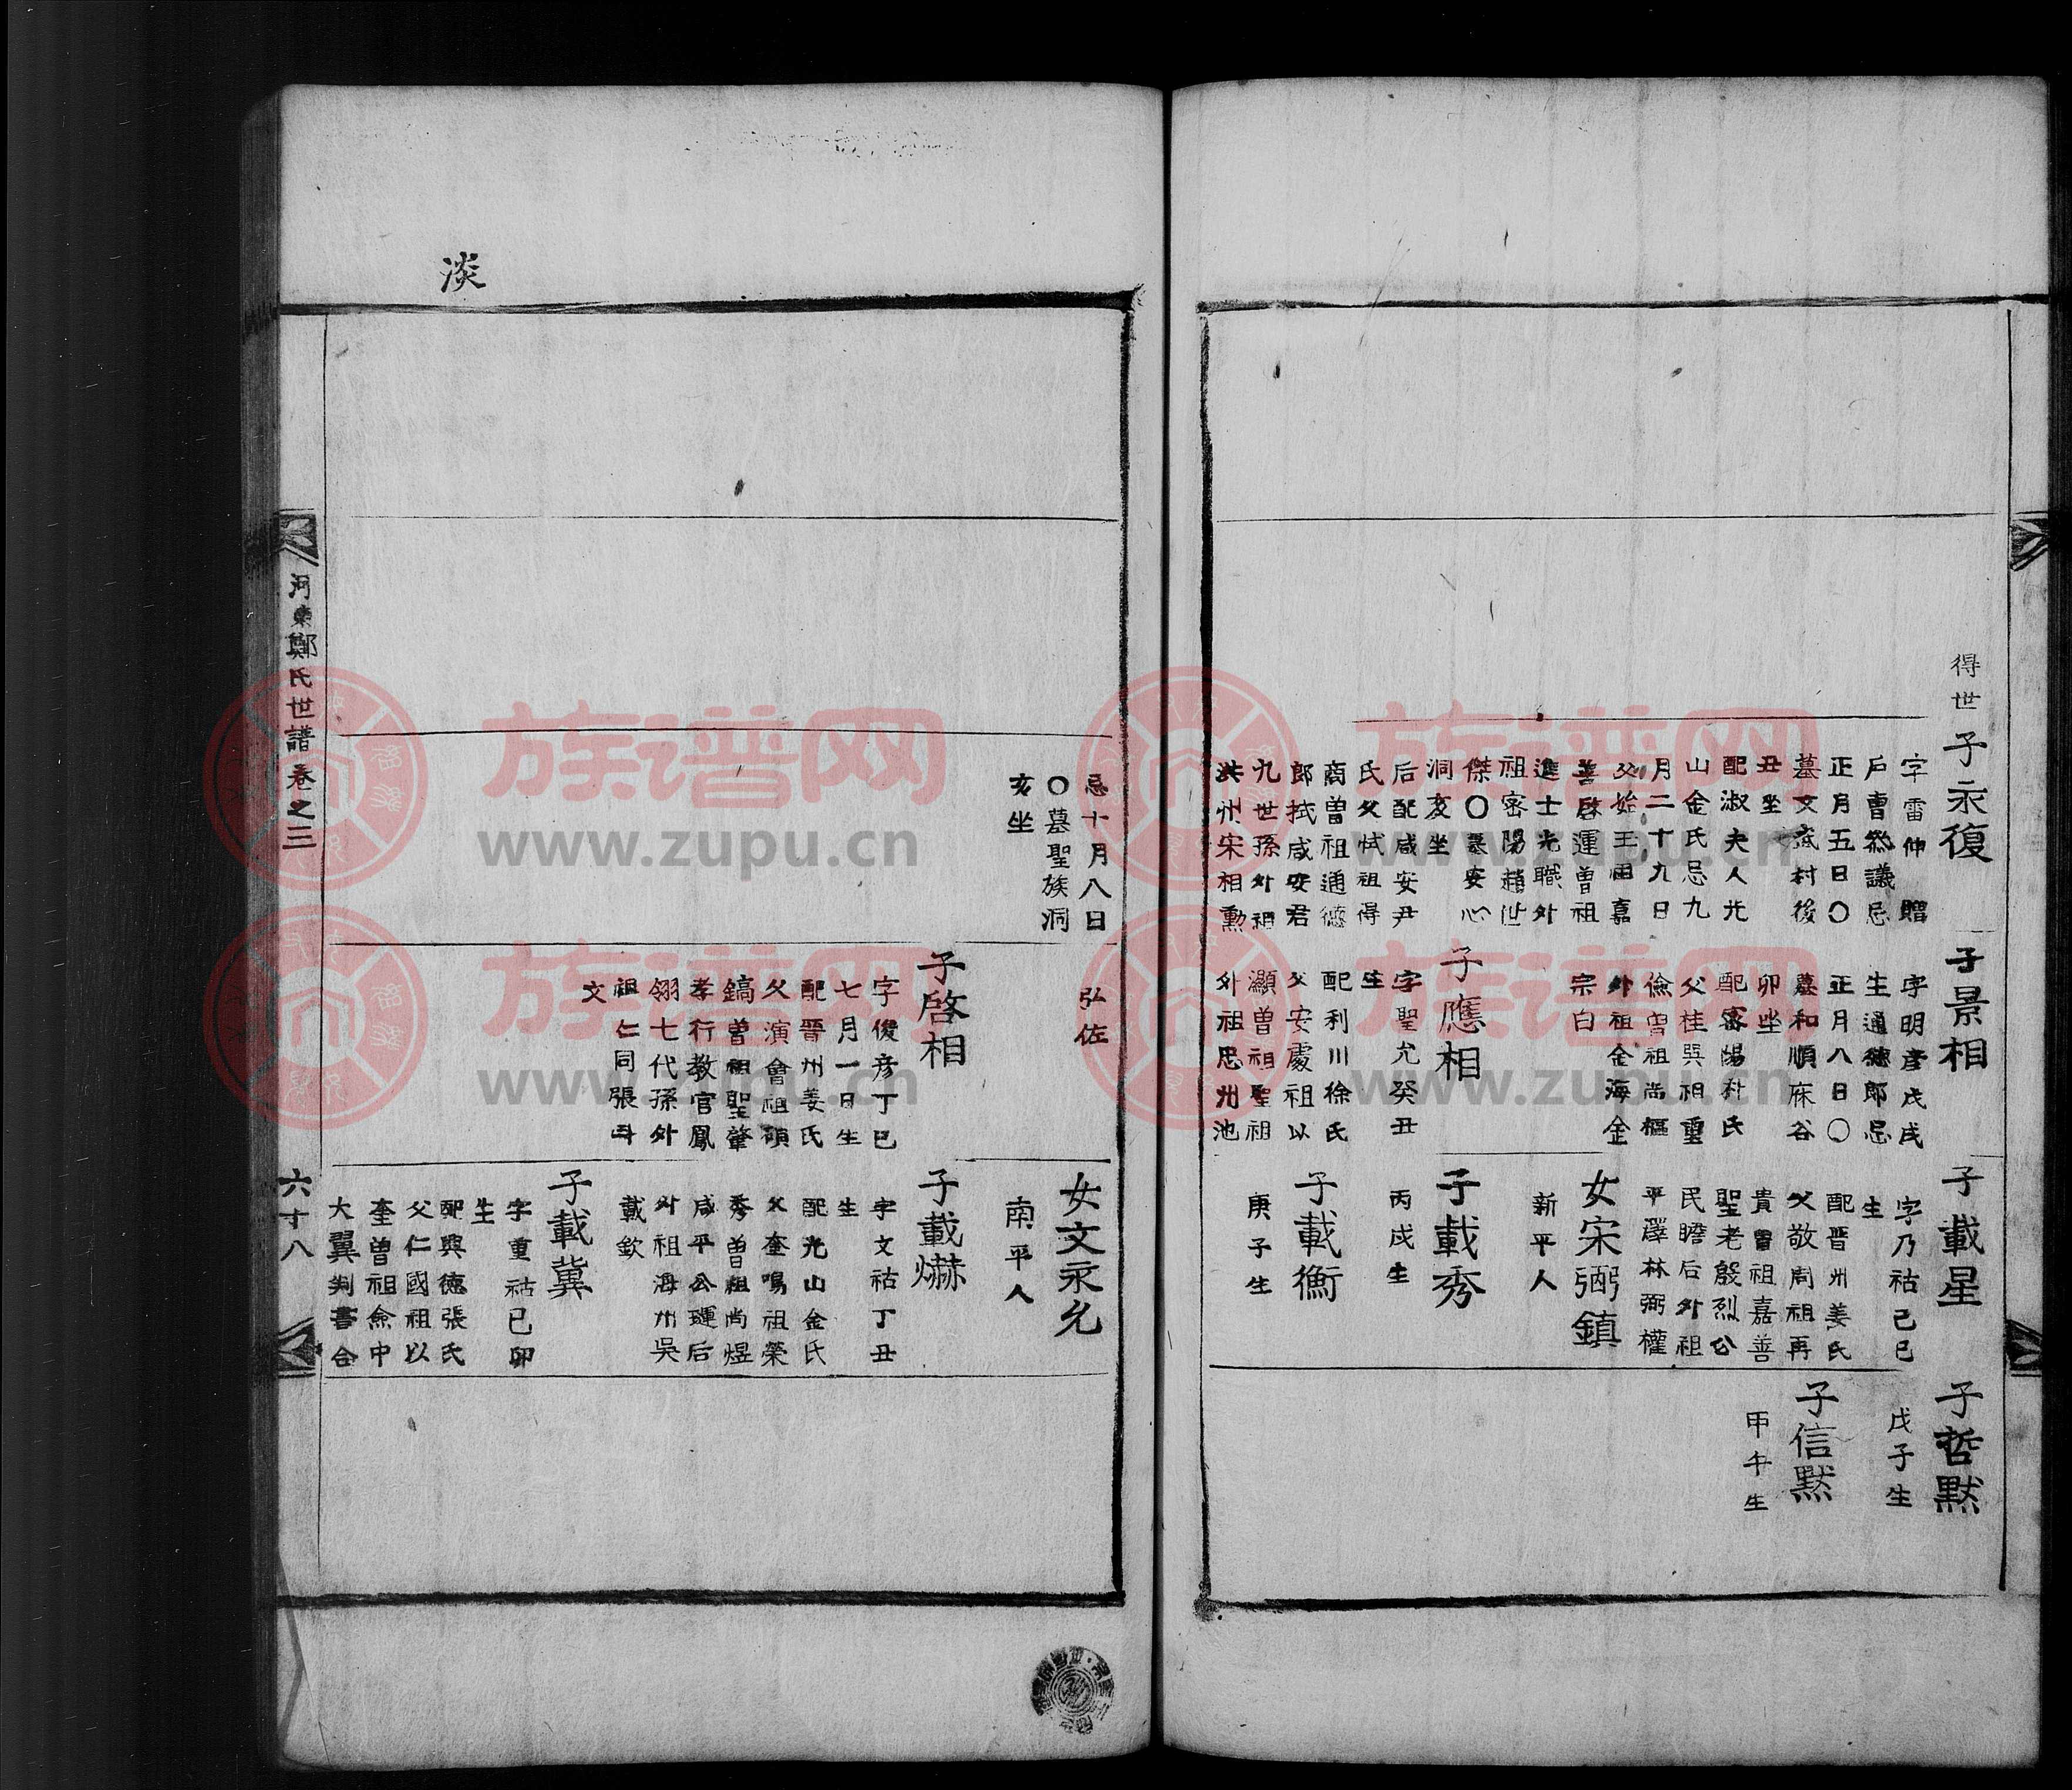 得世
子永復
字雷仲 贈
戶曹叅議忌
正月五日〇
墓文底村後
丑坐
配淑夫人光
山金氏忌九
月二十九日
父始王祖嘉
善啓運曽祖
進士光職外
祖密陽趙世
傑〇墓安心
洞亥坐
后配咸安尹
氏父栻祖得
商曽祖通德
郎拭咸安君
九世孫外祖
洪州宋相勳
子景相
字明彦戊戌
生通徳郎忌
正月八日〇
墓和順庥谷
卯坐
配密陽朴氏
父桂巽祖重
儉曽祖尚樞
外祖金海金
宗白
子應相
字聖允癸丑
生
配利川徐氏
父安處祖以
灝曽祖聖祖
外祖忠州池
子載星
字乃祜己巳
生
配晋州姜氏
父敬周祖再
貴曽祖嘉善
聖老殷烈公
民瞻后外祖
平澤林弼權
女宋弼鎮
新平人
子載秀
丙戌生
子載衡
庚子生
子哲黙
戊子生
子信黙
甲午生
淡
忌十月八日
〇墓聖族洞
亥坐
弘佐
子啓相
字俊彦丁巳
七月一日生
配晋州姜氏
父演會祖碩
鎬曽祖聖肇
孝行教官鳳
翎七代孫外
祖仁同張斗
文
女文永允
南平人
子載爀
字文祜丁丑
生
配光山金氏
父奎鳴祖榮
秀曽祖尚煜
咸平公璉后
外祖海州吳
載欽
子載冀
字重祜己卯
生
配興德張氏
父仁國祖以
奎曽祖兪中
大翼判書合
河東鄭氏世譜卷之三
六十八
族谱网
www.zupu.cn
族谱网
www.zupu.cn
族谱网
www.zupu.cn
族谱网
www.zupu.cn